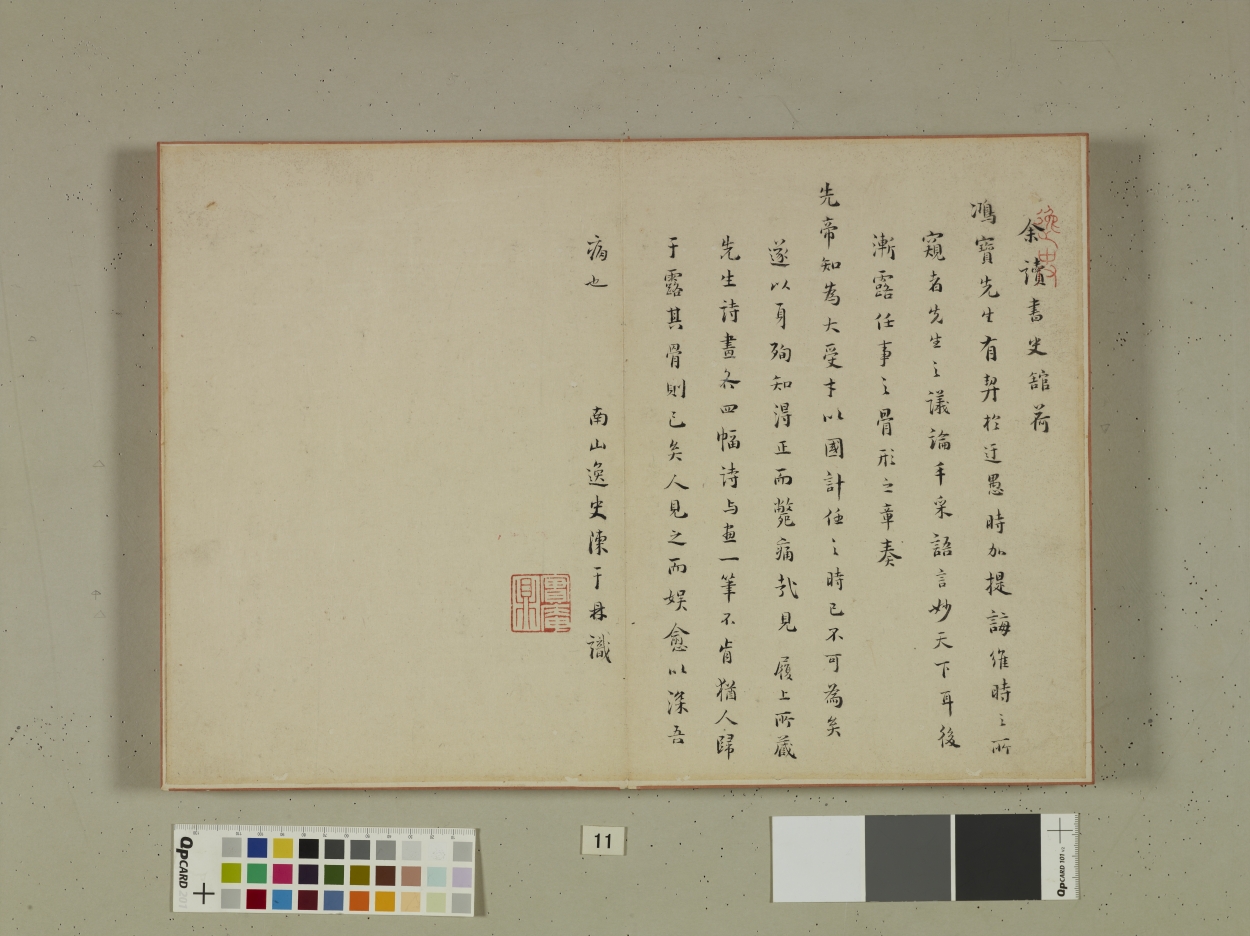 余讀書史舘荷
鴻寶先生有契於迂愚時加提誨維時之所
窺者先生之議論手采語言妙天下耳後
漸露任事之骨形之章奏
先帝知為大受才以國計任之時已不可為矣
遂以身殉知得正而斃痛哉見 履上所藏
先生詩畫各四幅詩与畫一筆不肯猶人歸
于露其骨則已矣人見之而娱愈以深吾
病也
南山逸史陳于鼎識
逸史
QPCARD 201
11
QPCARD 101